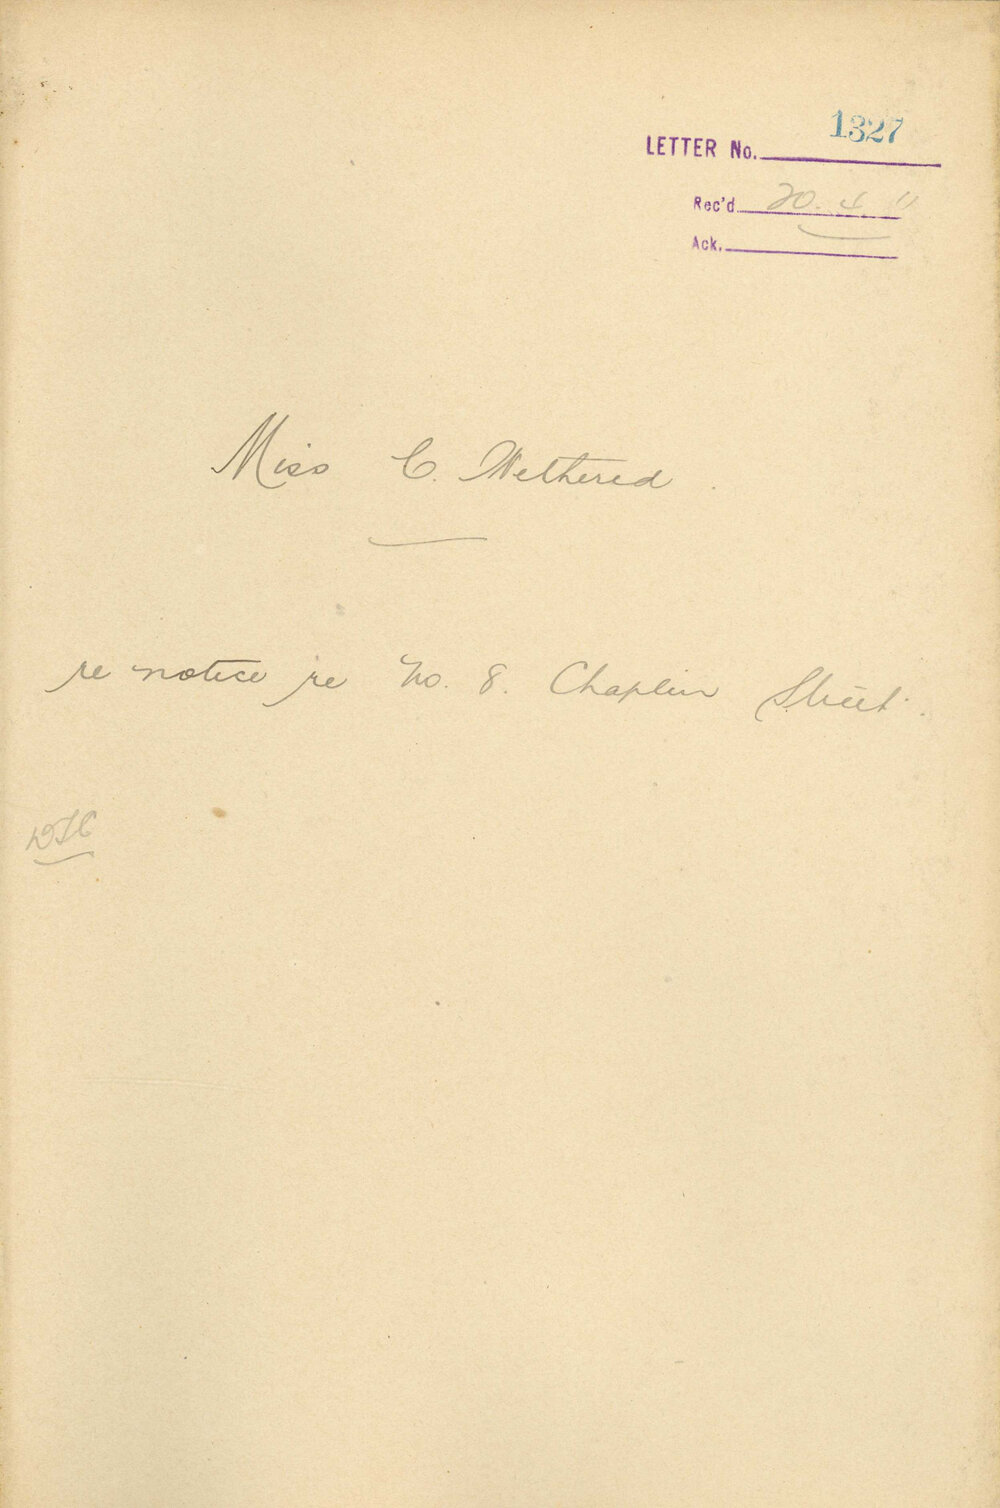 1327
LETTER No.
Rec'd 20. 4. 11
Ack.
Miss C. Wethered.
re notice re No. 8. Chaplin Street.